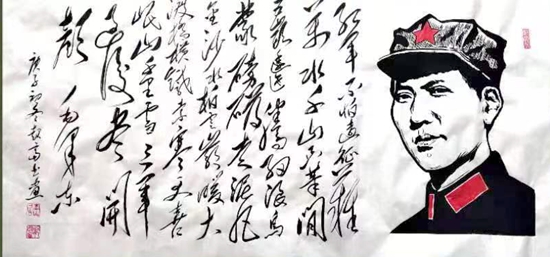 红军不怕远征难
万水千山只等闲
五岭逶迤腾细浪乌
蒙磅礴走泥丸
金沙水拍云崖暖大
渡桥横铁索寒更喜
岷山千里雪三军
过后尽开
颜 毛泽东
庚子初冬 书画